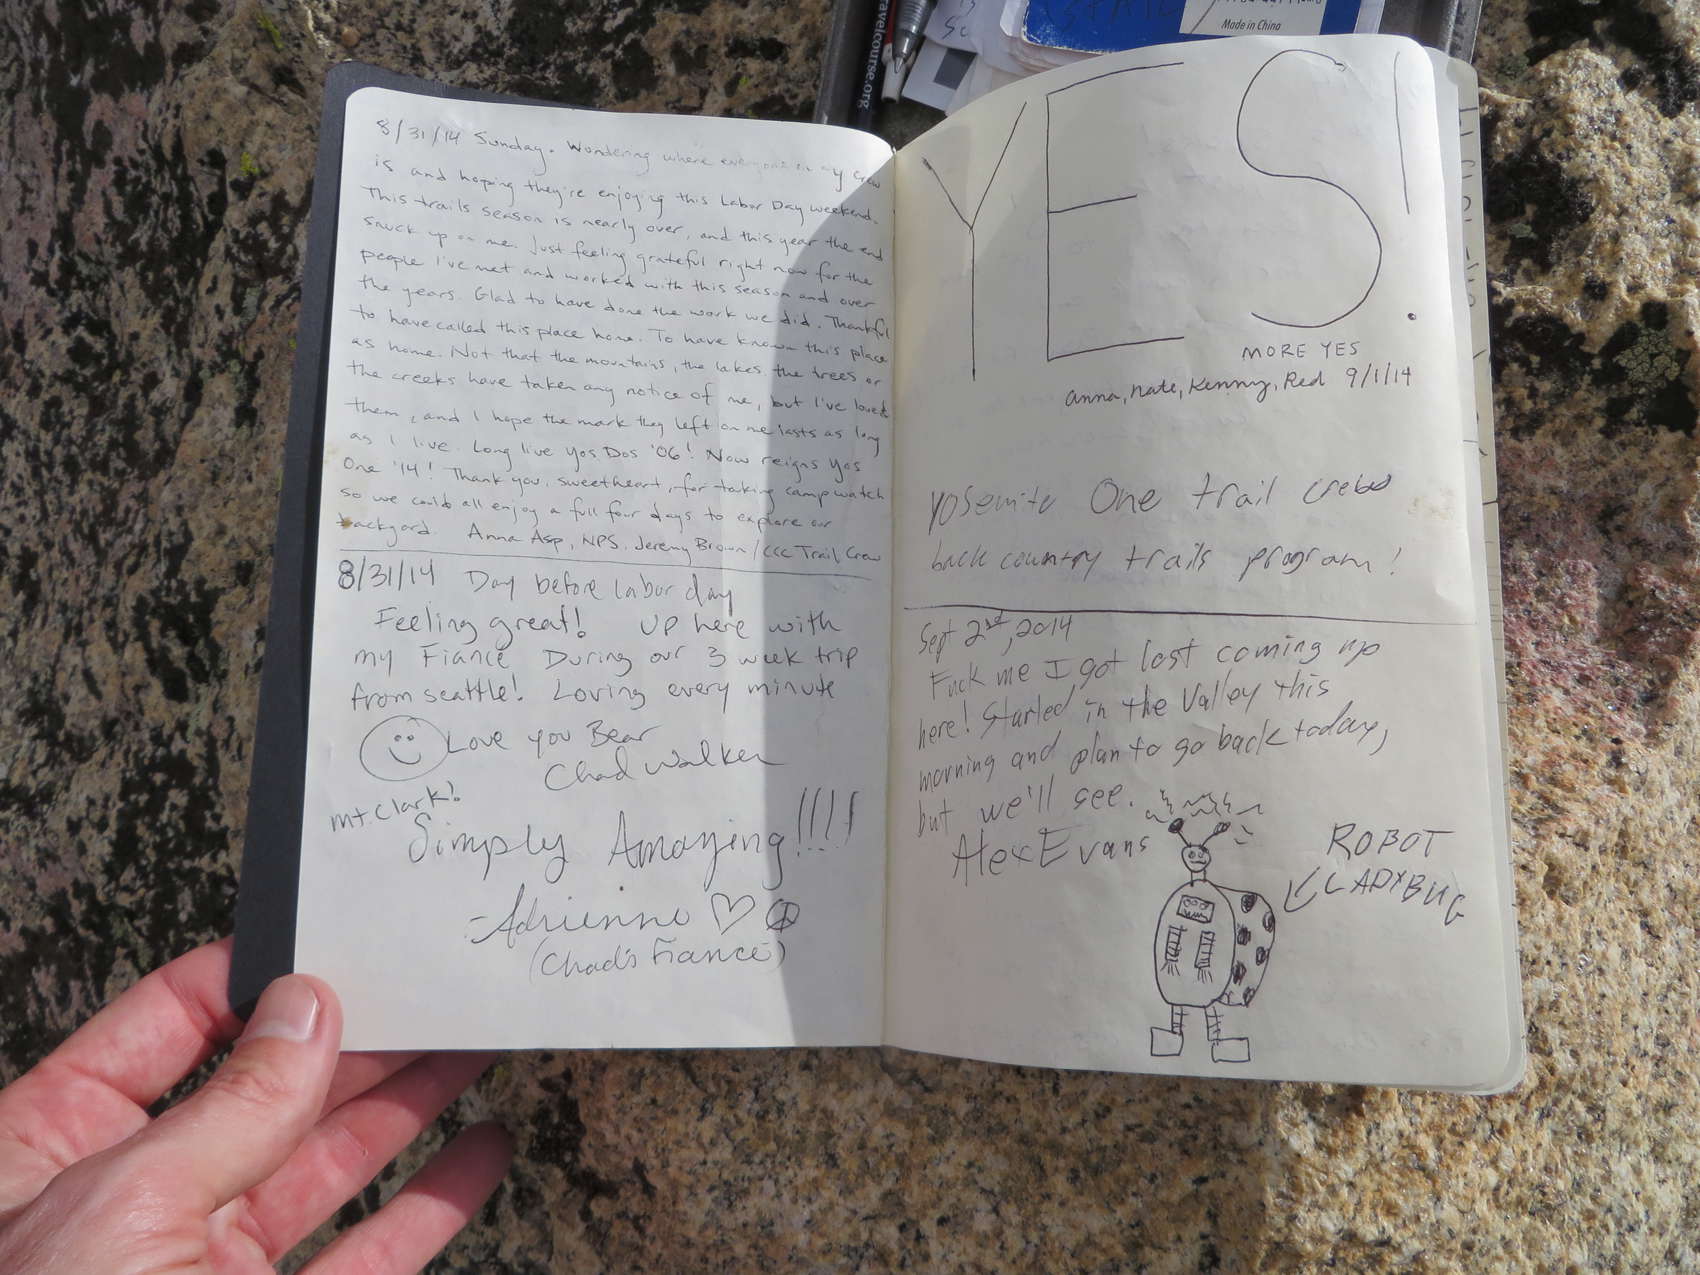 8/31/14 Sunday. Wondering where everyone on my crew
is and hoping they're enjoying this Labor Day weekend.
This trails season is nearly over, and this year the end
snuck up on me. Just feeling grateful right now for the
people I've met and worked with this season and over
the years. Glad to have done the work we did. Thankful
to have called this place home. To have known this place
as home. Not that the mountains, the lakes, the trees or
the creeks have taken any notice of me, but I've loved
them, and I hope the mark they left on me lasts as long
as I live. Long live Yos Dos '06! Now reigns Yos
One '14! Thank you, sweetheart, for taking camp watch
so we could all enjoy a full four days to explore our
backyard. Anna Asp, NPS. Jeremy Brown/CCC Trail Crew
8/31/14 Day before labor day
Feeling great! Up here with
my Fiance During our 3 week trip
from seattle! Loving every minute
Love you Bear
Chad Walker
Mt. Clark!
Simply Amazing!!!!
-Adrienne
(Chad's Fiance)
YES!
MORE YES
Anna, Nate, Kenny, Red 9/1/14
Yosemite One trail crew
back country trails program!
Sept 2nd, 2014
Fuck me I got lost coming up
here! Started in the Valley this
morning and plan to go back today,
but we'll see.
Alex Evans
ROBOT
LADYBUG
avelcourse.org
Made in China